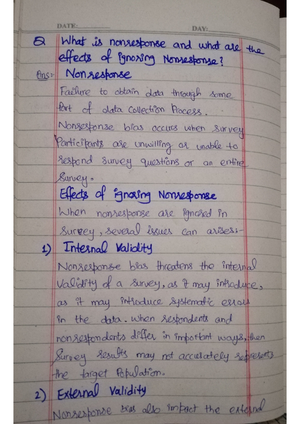 DATE: DAY:
Q What is nonresponse and what are the
effects of ignoring Nonresponse?
Ans:- Nonresponse
Failure to obtain data through some
Part of data Collection Process.
Nonresponse bias occurs when survey
Participants are unwilling or unable to
respond survey questions or an entire
Survey.
Effects of ignoring Nonresponse
When nonresponse are ignored in
survey, several issues can arises:-
1) Internal Validity
Nonresponse bias threatens the internal
Validity of a survey, as it may introduce,
as it may introduce systematic errors
in the data. when respondents and
nonrespondents differ in important ways, then
Survey results may not accurately represents
the target Population.
2) External Validity
Nonresponse bias also impact the external